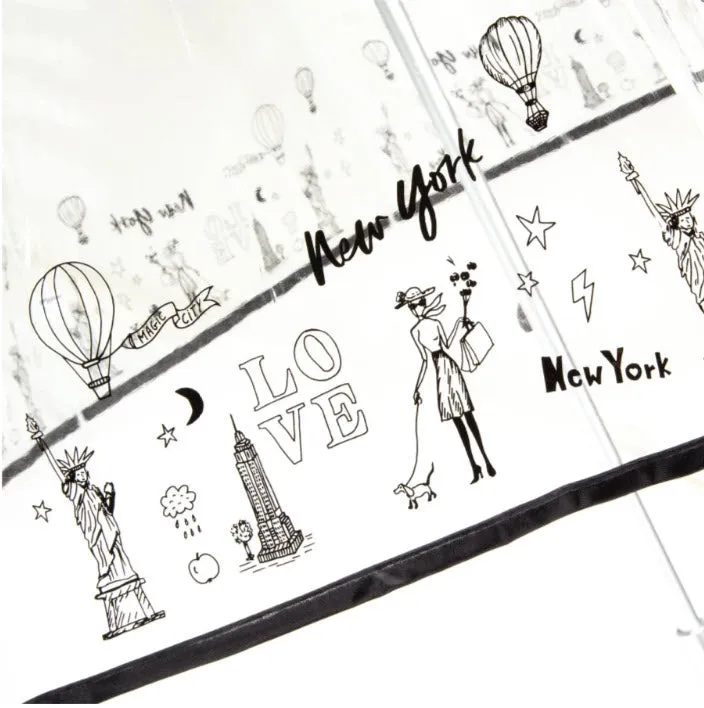 New York
MAGIC CITY
LO
VE
New York